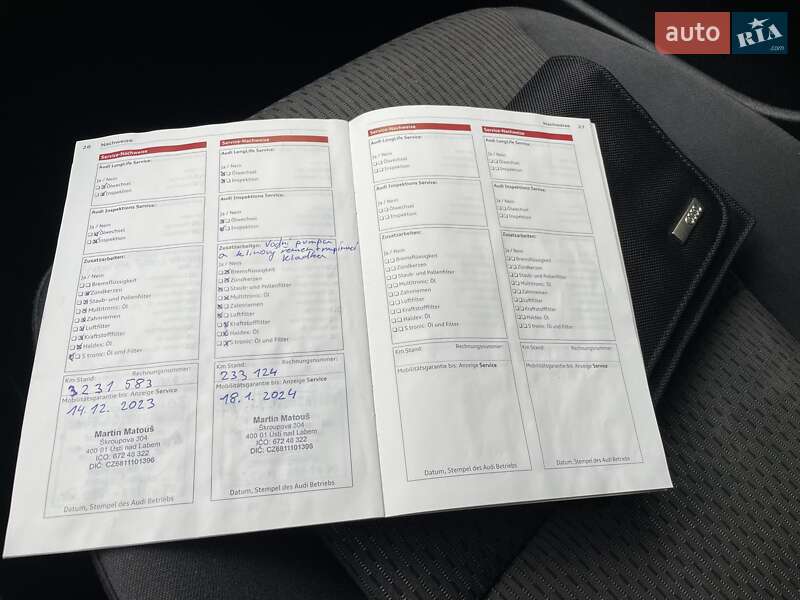 auto RIA
.com
26 Nachweise
Service-Nachweise
Audi LongLife Service:
Ja / Nein
Ölwechsel
Inspektion
Audi Inspektions Service:
Ja / Nein
Ölwechsel
Inspektion
Zusatzarbeiten:
Ja / Nein
Bremsflüssigkeit
Zündkerzen
Staub- und Pollenfilter
Multitronic: Öl
Zahnriemen
Luftfilter
Kraftstofffilter
Haldex: Öl
S tronic: Öl und Filter
Km Stand: Rechnungsnummer:
3231 583
Mobilitätsgarantie bis: Anzeige Service
14.12. 2023
Martin Matouš
Škroupova 304
400 01 Ústí nad Labem
IČO: 672 48 322
DIČ: CZ6811101396
Datum, Stempel des Audi Betriebs
Service-Nachweise
Audi LongLife Service:
Ja / Nein
Ölwechsel
Inspektion
Audi Inspektions Service:
Ja / Nein
Ölwechsel
Inspektion
Zusatzarbeiten: Vodní pumpa
a klínový řemen + napínací
kladka
Ja / Nein
Bremsflüssigkeit
Zündkerzen
Staub- und Pollenfilter
Multitronic: Öl
Zahnriemen
Luftfilter
Kraftstofffilter
Haldex: Öl
S tronic: Öl und Filter
Km Stand: Rechnungsnummer:
233 124
Mobilitätsgarantie bis: Anzeige Service
18.1. 2024
Martin Matouš
Škroupova 304
400 01 Ústí nad Labem
IČO: 672 48 322
DIČ: CZ6811101396
Datum, Stempel des Audi Betriebs
Nachweise 27
Service-Nachweise
Audi LongLife Service:
Ja / Nein
Ölwechsel
Inspektion
Audi Inspektions Service:
Ja / Nein
Ölwechsel
Inspektion
Zusatzarbeiten:
Ja / Nein
Bremsflüssigkeit
Zündkerzen
Staub- und Pollenfilter
Multitronic: Öl
Zahnriemen
Luftfilter
Kraftstofffilter
Haldex: Öl
S tronic: Öl und Filter
Km Stand: Rechnungsnummer:
Mobilitätsgarantie bis: Anzeige Service
Datum, Stempel des Audi Betriebs
Service-Nachweise
Audi LongLife Service:
Ja / Nein
Ölwechsel
Inspektion
Audi Inspektions Service:
Ja / Nein
Ölwechsel
Inspektion
Zusatzarbeiten:
Ja / Nein
Bremsflüssigkeit
Zündkerzen
Staub- und Pollenfilter
Multitronic: Öl
Zahnriemen
Luftfilter
Kraftstofffilter
Haldex: Öl
S tronic: Öl und Filter
Km Stand: Rechnungsnummer:
Mobilitätsgarantie bis: Anzeige Service
Datum, Stempel des Audi Betriebs